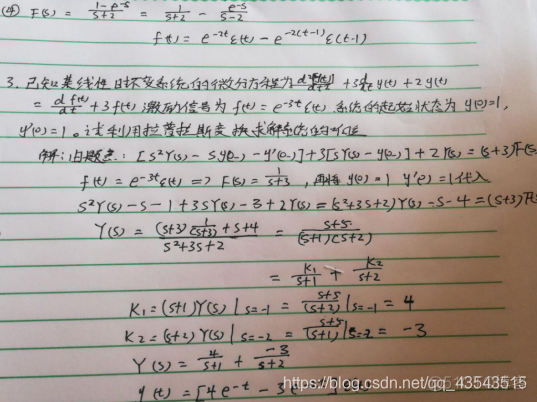 (4) F(s) = (1-e^{-s})/(s+2) = 1/(s+2) - e^{-s}/(s-2)
f(t) = e^{-2t}ε(t) - e^{-2(t-1)}ε(t-1)
3. 已知某线性时不变系统的微分方程为 d²y(t)/dt + 3 d/dt y(t) + 2 y(t)
= d f(t)/dt + 3 f(t) 激励信号为 f(t) = e^{-3t}ε(t) 系统的起始状态为 y(0)=1,
y'(0)=1。试利用拉普拉斯变换求解系统的
解: : [s²Y(s) - sy(0_-) - y'(0_-)] + 3[sY(s) - y(0_-)] + 2Y(s) = (s+3)F(s)
f(t) = e^{-3t}ε(t) => F(s) = 1/(s+3), 再将 y(0)=1 y'(0)=1代入
s²Y(s) - s - 1 + 3sY(s) - 3 + 2Y(s) = (s²+3s+2)Y(s) - s - 4 = (s+3)
Y(s) = ((s+3) 1/(s+3) + s+4)/(s²+3s+2) = (s+5)/((s+1)(s+2))
= K1/(s+1) + K2/(s+2)
K1 = (s+1)Y(s)|s=-1 = (s+5)/(s+2)|s=-1 = 4
K2 = (s+2)Y(s)|s=-2 = (s+5)/(s+1)|s=-2 = -3
Y(s) = 4/(s+1) + -3/(s+2)
y(t) = [4e^{-t} - 3e
https://blog.csdn.net/qq_43543515